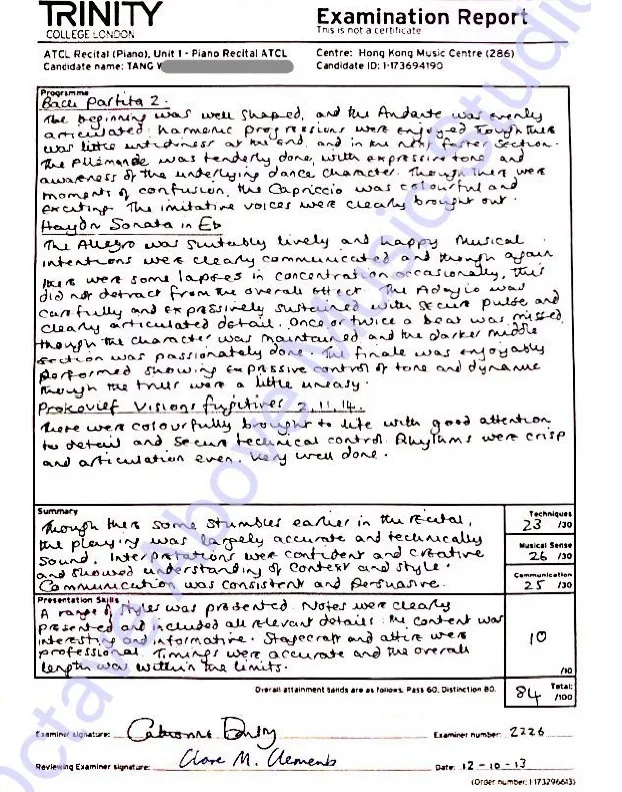 TRINITY
COLLEGE LONDON
Examination Report
This is not a certificate
ATCL Recital (Piano), Unit 1 - Piano Recital ATCL
Centre: Hong Kong Music Centre (286)
Candidate name: TANG
Candidate ID: 1-173694190
Programme
Bach Partita 2.
The beginning was well shaped, and the Andante was evenly
articulated; harmonic progressions were enjoyed though there
was little untidiness at the end, and in the next, faster section.
The Allemande was tenderly done, with expressive tone and
awareness of the underlying dance character. Though there were
moments of confusion, the Capriccio was colourful and
exciting. The imitative voices were clearly brought out.
Haydn Sonata in Eb
The Allegro was suitably lively and happy. Musical
intentions were clearly communicated and though again
there were some lapses in concentration occasionally, this
did not detract from the overall effect. The Adagio was
carefully and expressively sustained with secure pulse and
clearly articulated detail. Once or twice a beat was missed
though the character was maintained and the darker middle
section was passionately done. The finale was enjoyably
performed showing expressive control of tone and dynamic
though the trills were a little uneasy.
Prokovief Visions fugitives 2, 11, 14.
These were colourfully brought to life with good attention
to detail and secure technical control. Rhythms were crisp
and articulation even. Very well done.
Summary
Though there some stumbles earlier in the recital,
the playing was largely accurate and technically
sound. Interpretations were confident and creative
and showed understanding of context and style.
Communication was consistent and persuasive.
Techniques
23 /30
Musical Sense
26 /30
Communication
25 /30
Presentation Skills
A range of styles was presented. Notes were clearly
presented and included all relevant details; the content was
interesting and informative. Stagecraft and attire were
professional. Timings were accurate and the overall
length was within the limits.
10
/10
Overall attainment bands are as follows: Pass 60, Distinction 80.
84 Total:
/100
Examiner signature:
Examiner number: 2226
Reviewing Examiner signature: Clare M. Clements
Date: 12-10-13
(Order number: 1-173296613)
Octave Above Music Studio